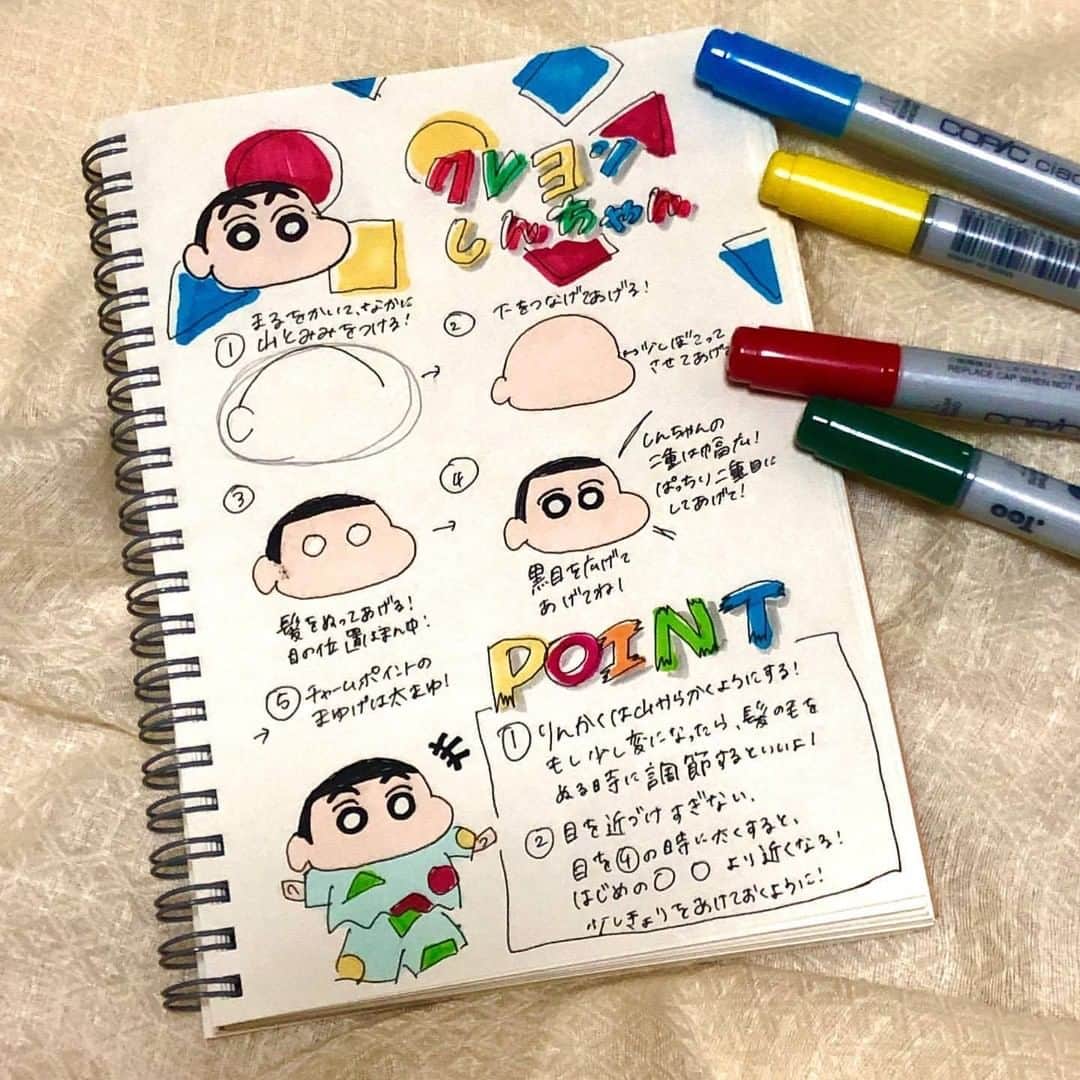 クレヨン
しんちゃん
① まるをかいて、なかに
山とみみをつける!
→
② 下をつなげてあげる!
少しぼこって
させてあげ
③
髪をぬってあげる!
目の位置はまん中!
→
④
しんちゃんの
二重は幅広!
ぱっちり二重目に
してあげて!
黒目を広げて
あげてね!
→ ⑤ チャームポイントの
まゆげは太まゆ!
POINT
① りんかくは山からかくようにする!
もし少し変になったら、髪の毛を
ぬる時に調節するといいよ!
② 目を近づけすぎない、
目を④の時に太くすると、
はじめの〇 〇 より近くなる!
少しきょりをあけておくように!
COPIC ciao
REPLACE CAP WHEN NOT
COPIC
.Too